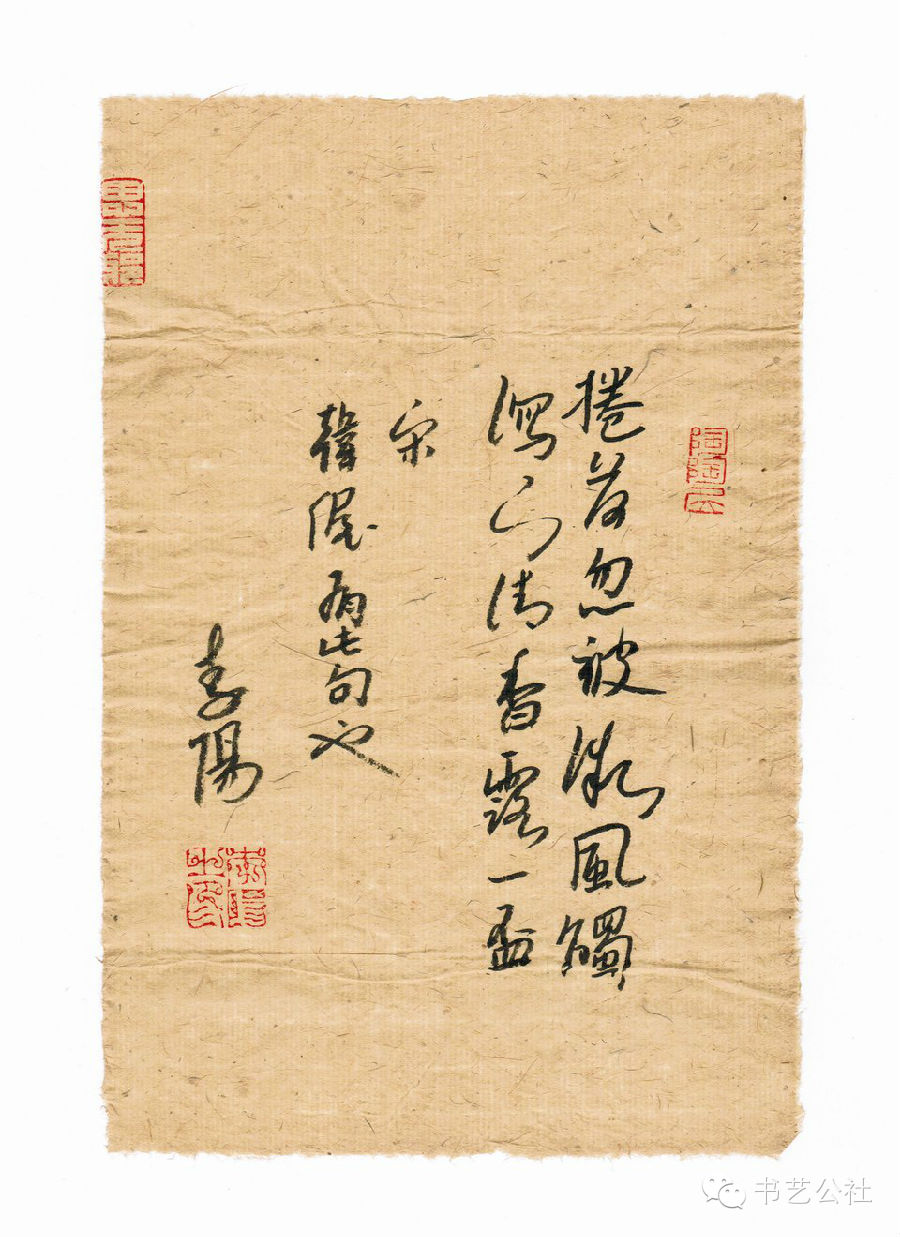 捲荷忽被微風觸
瀉下清香露一盃
宋
韓偓有此句也
李陽
书艺公社